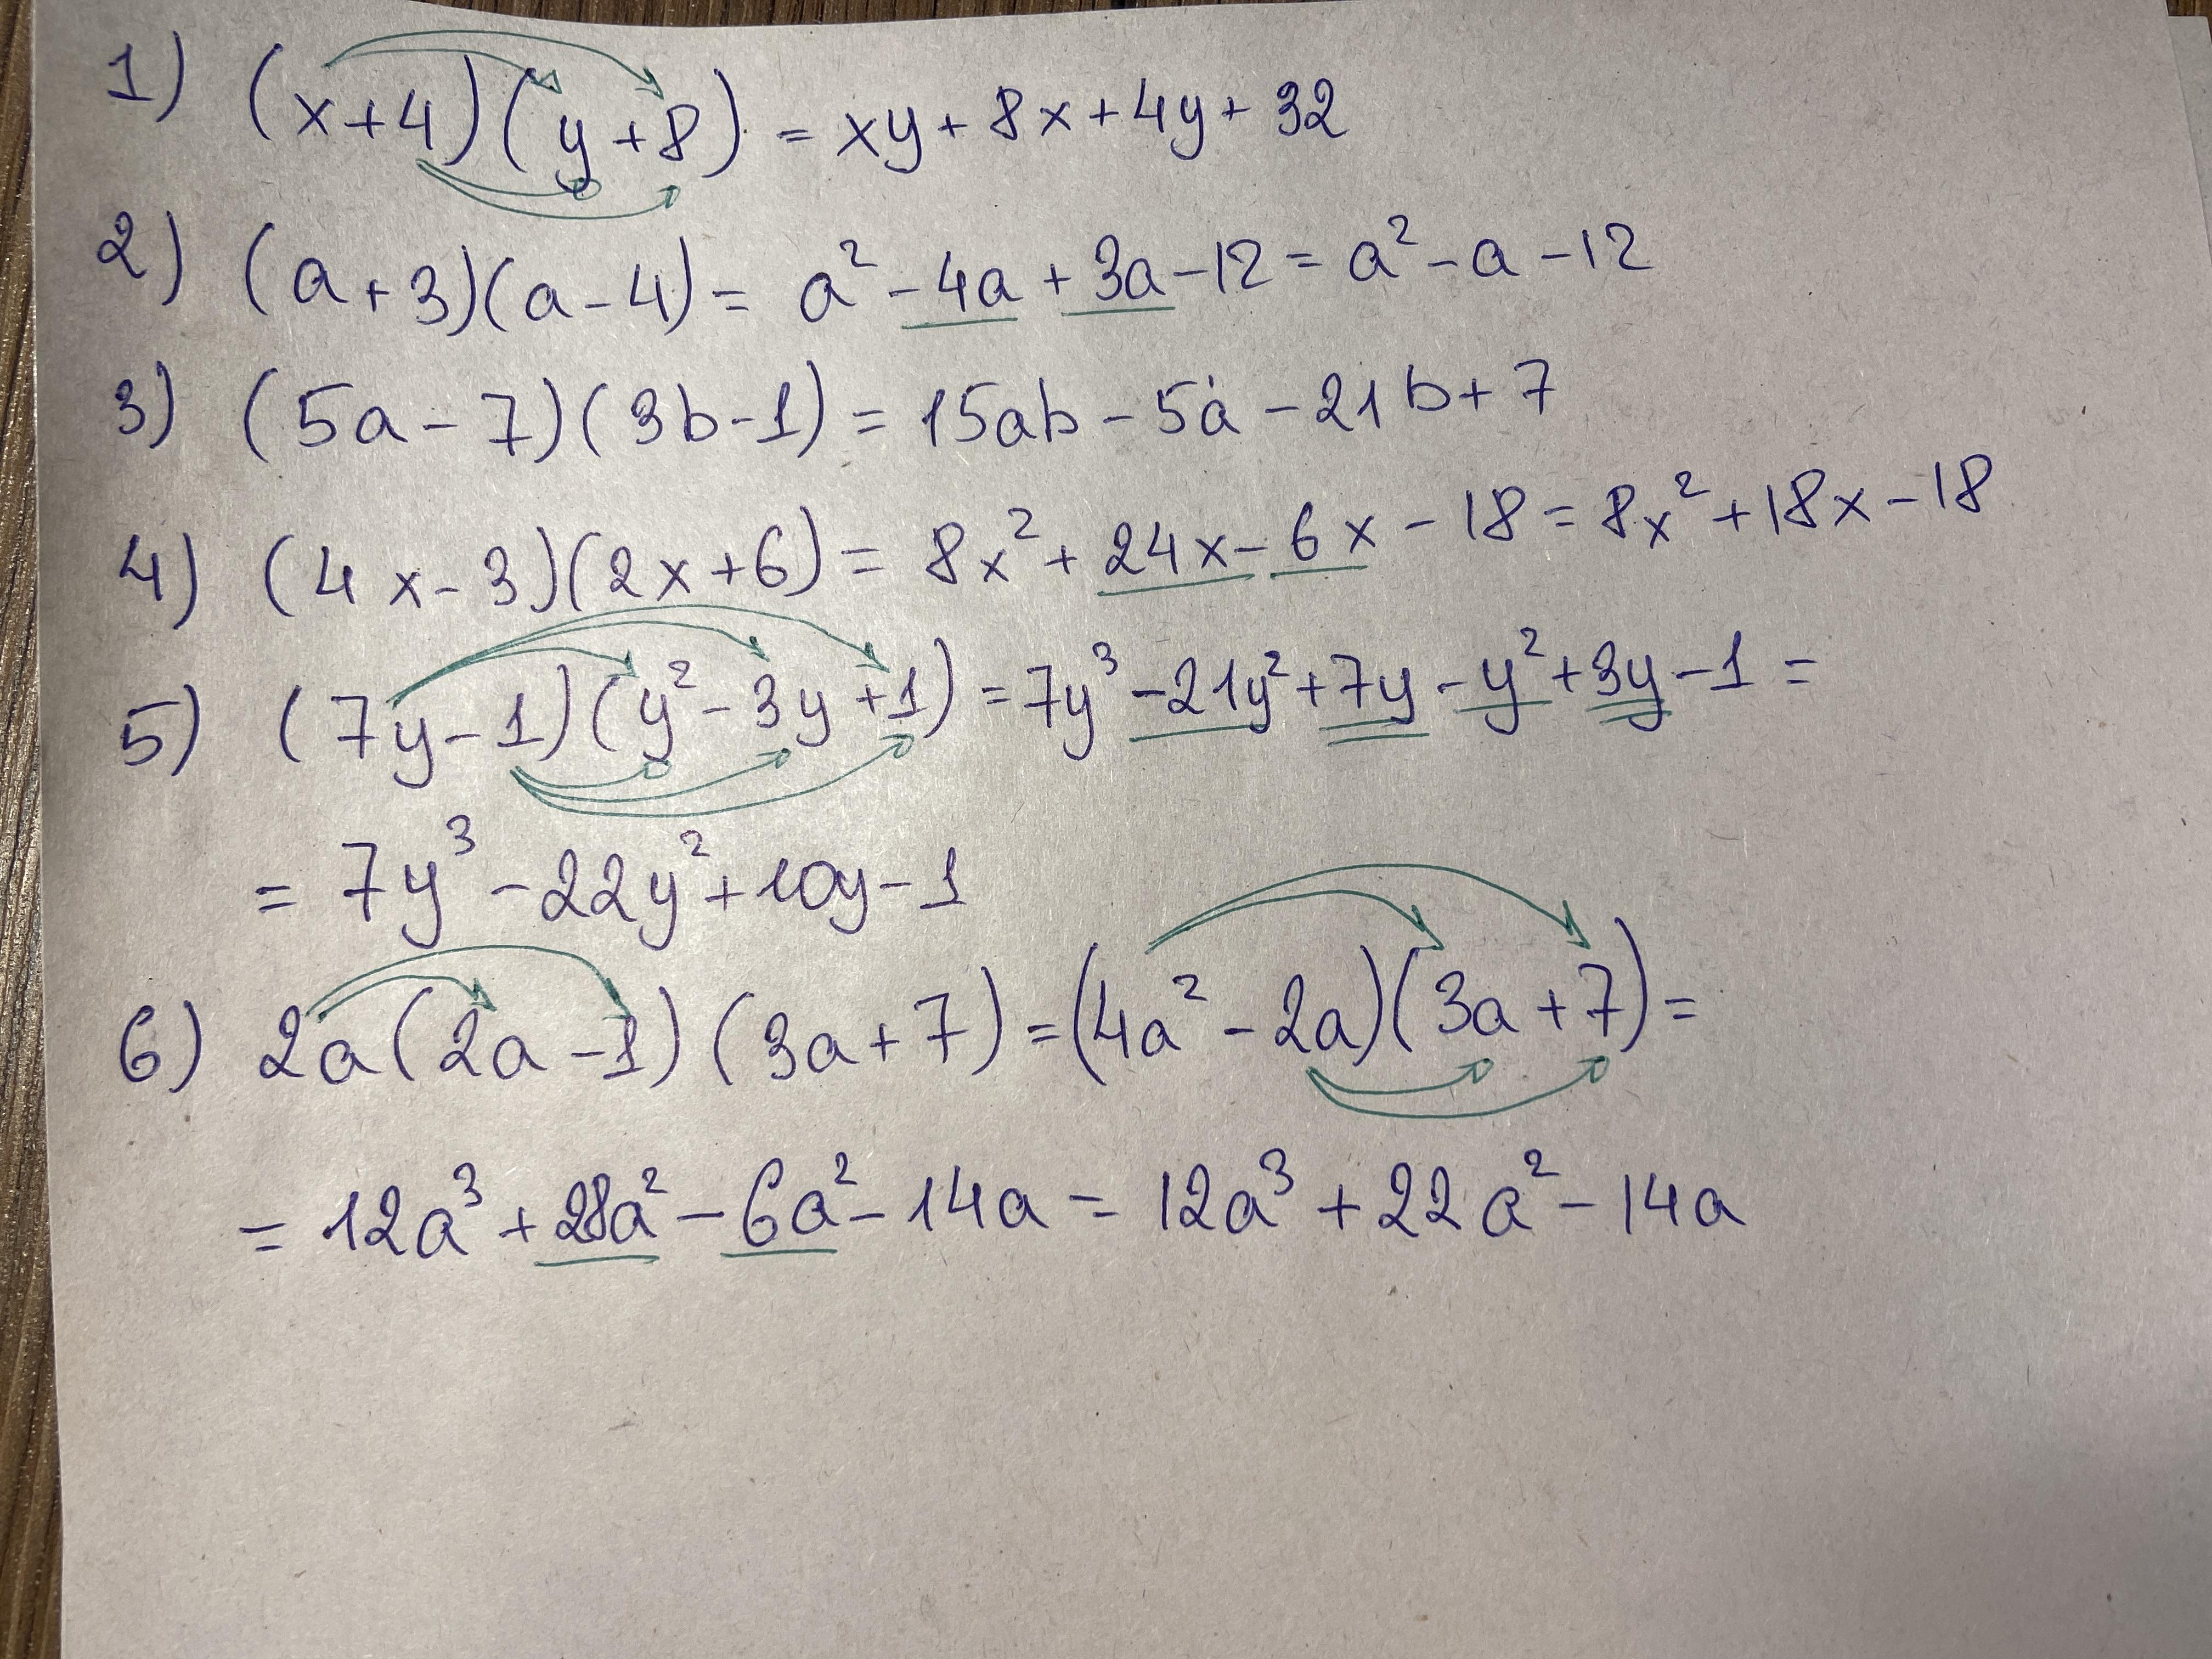 1) (x+4)(y+8) = xy + 8x + 4y + 32
2) (a+3)(a-4) = a² - 4a + 3a - 12 = a² - a - 12
3) (5a - 7)(3b-1) = 15ab - 5a - 21b + 7
4) (4x-3)(2x+6) = 8x² + 24x - 6x - 18 = 8x² + 18x - 18
5) (7y-1)(y² - 3y + 1) = 7y³ - 21y² + 7y - y² + 3y - 1 =
= 7y³ - 22y² + 10y - 1
6) 2a(2a-1)(3a+7) = (4a² - 2a)(3a+7) =
= 12a³ + 28a² - 6a² - 14a = 12a³ + 22a² - 14a